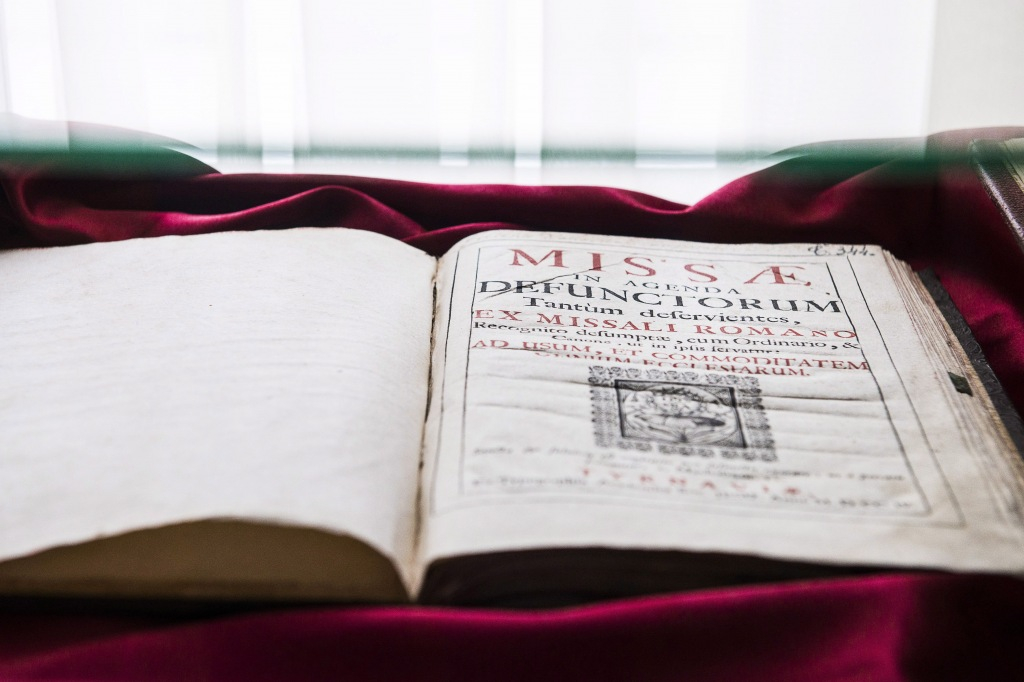 MISSÆ
IN AGENDA
DEFUNCTORUM
Tantùm deſervientes,
EX MISSALI ROMANO
Recognito deſumptæ, cum Ordinario, &
Canone, ut in ipſis ſervatur.
AD USUM, ET COMMODITATEM
OMNIUM ECCLESIARUM.
TYRNAVIÆ